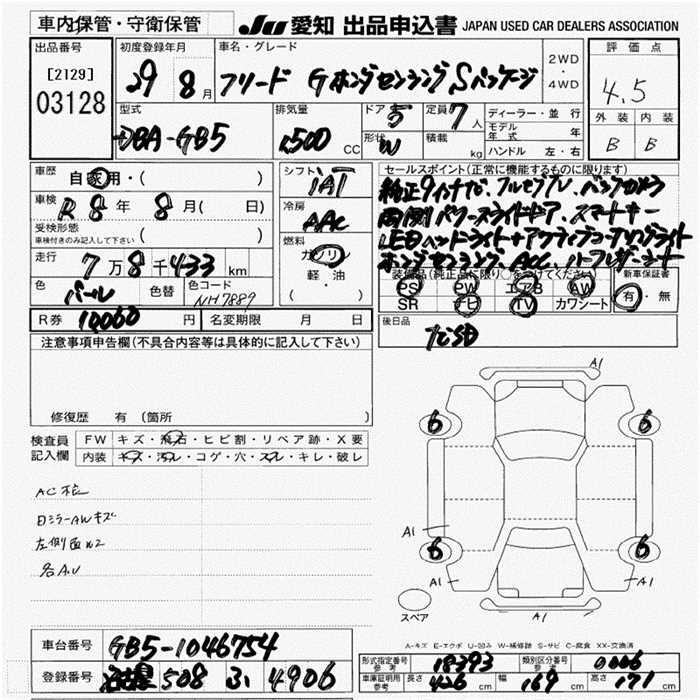 車内保管・守衛保管
JU 愛知 出品申込書 JAPAN USED CAR DEALERS ASSOCIATION
出品番号
[2129]
03128
初度登録年月
29 8月
車名・グレード
フリード Gホンダセンシング Sパッケージ
2WD
・
4WD
評価点
4.5
外装 内装
B B
型式
DBA-GB5
排気量
1,500 CC
ドア 5
形状 W
定員 7人
積載 kg
ディーラー・並行
モデル年式 年
ハンドル 左・右
車歴 自家用・( )
車検 R 8年 8月( 日)
受検形態
車検付きのみ記入して下さい ( )
走行 7万8千433km
色 パール 色替 色コード NH788P
シフト
IAT
冷房
AAC
燃料
ガソリン
軽・油
( )
セールスポイント(正常に機能するものに限ります)
純正9インチナビ、フルセグTV、バックカメラ
両側パワースライドドア、スマートキー
LEDヘッドライト+アクティブコーナリングライト
ホンダセンシング、ACC、ハーフレザーシート
装備品(純正品に限り○をつけてください)
PS PW エアB AW
SR ナビ TV カワシート
新車保証書
有・無
R券 10060円 名変期限 月 日
後日品
ナビSD
注意事項申告欄(不具合内容等は具体的に記入して下さい)
修復歴 有(箇所
検査員
記入欄
FW キズ・飛石・ヒビ割・リペア跡・X要
内装 キズ・汚レ・コゲ・穴・スレ・キレ・破レ
ミラーAWキズ
左側面
各A.U
A1
6 6
A1
6 6
A1 A1
A1
スペア
A-キズ E-エクボ U-凹み W-補修跡 S-サビ C-腐食 XX-交換済
車台番号 GB5-1046754
登録番号 508 ふ 4906
形式指定番号
参考
18393
類別区分番号
参考
車庫証明用
参考
長さ 426cm 幅 169cm 高さ 171cm